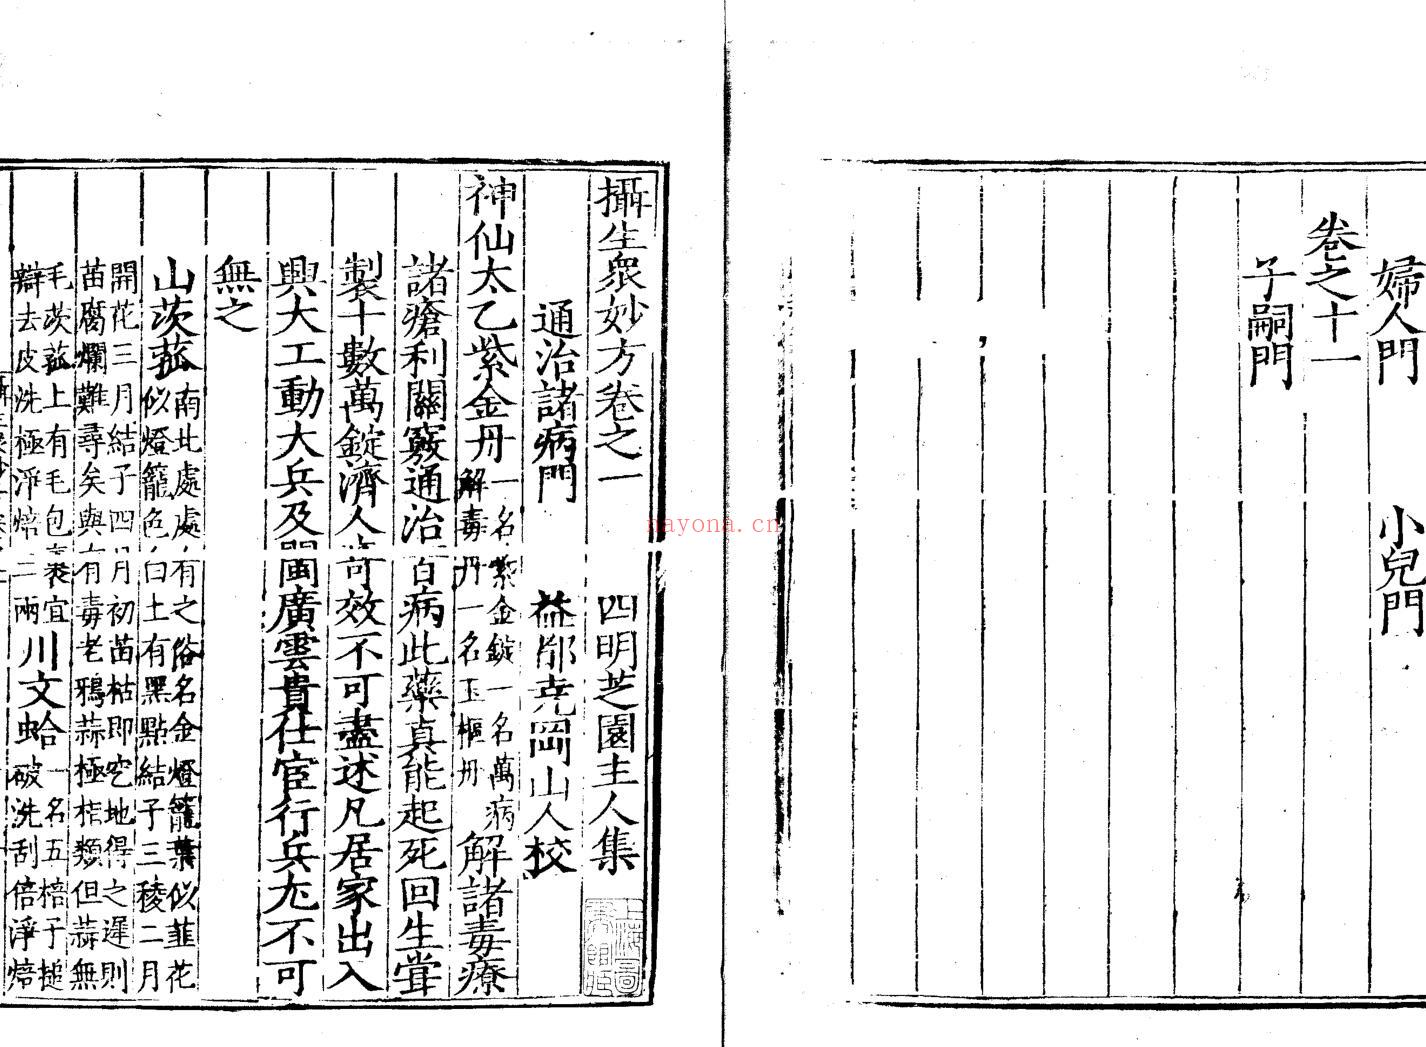 婦人門 小兒門
卷之十一
子嗣門
攝生衆妙方卷之一 四明芝園主人集
通治諸病門 益郡堯岡山人校
神仙太乙紫金丹 一名紫金錠一名萬病
解毒丹一名玉樞丹 解諸毒療
諸瘡利關竅通治百病此藥真能起死回生甞
製十數萬錠濟人奇效不可盡述凡居家出入
興大工動大兵及閩廣雲貴仕宦行兵尤不可
無之
山茨菰 南北處處有之俗名金燈籠葉似韮花
似燈籠色白上有黑點結子三稜二月
開花三月結子四月初苗枯即空地得之遲則
苗腐爛難尋矣與有毒老鴉蒜極相類但蒜無
毛茨菰上有毛包裹宜
辯去皮洗極淨焙二兩 川文蛤 一名五棓子搥
破洗刮倍淨焙
nayona.cn